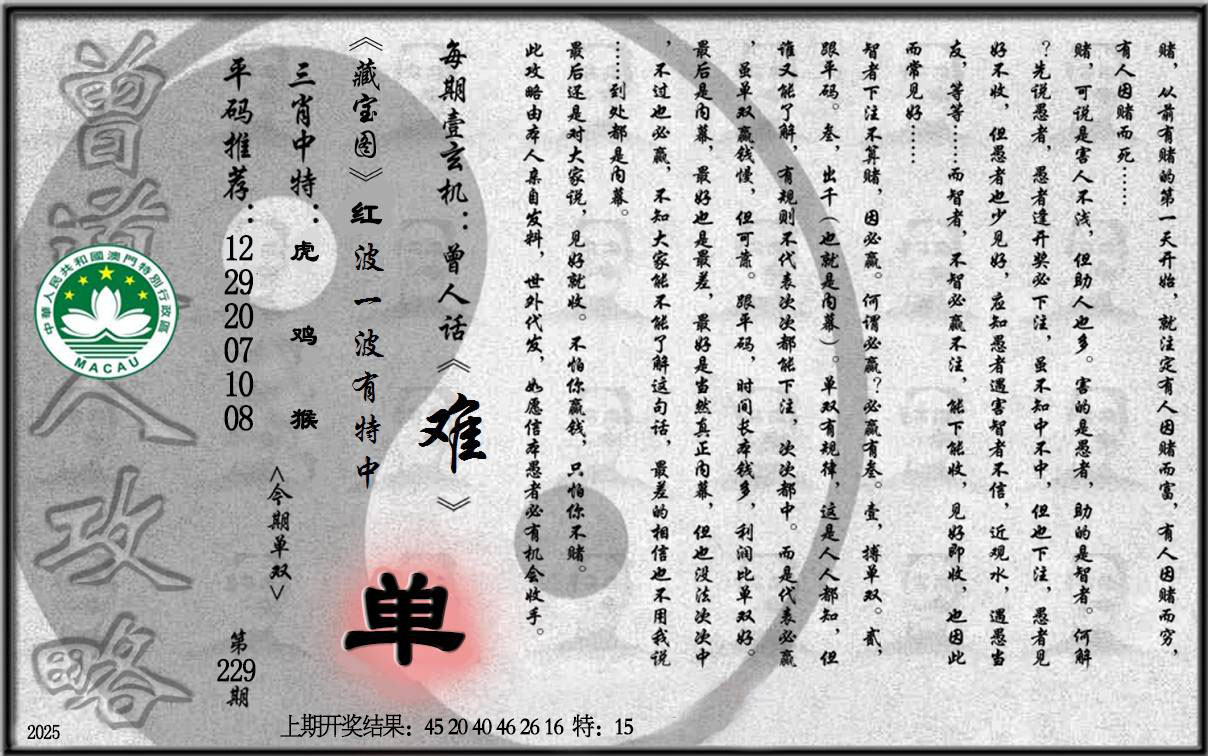 赌，从前有赌的第一天开始，就注定有人因赌而富，有人因赌而穷，
有人因赌而死……
赌，可说是害人不浅，但助人也多。害的是愚者，助的是智者。何解
？先说愚者，愚者逢开奖必下注，虽不知中不中，但也下注，愚者见
好不收，但愚者也少见好，应知愚者遇害智者不信，近观水，遇愚当
友，等等……而智者，不智必赢不注，能下能收，见好即收，也因此
而常见好……
智者下注不算赌，因必赢。何谓必赢？必赢有叁。壹，搏单双。贰，
跟平码。叁，出千（也就是内幕）。单双有规律，这是人人都知，但
谁又能了解，有规则不代表次次都能下注，次次都中。而是代表必赢
，虽单双赢钱慢，但可靠。跟平码，时间长本钱多，利润比单双好。
最后是内幕，最好也是最差，最好是当然真正内幕，但也没法次次中
，不过也必赢，不知大家能不能了解这句话，最差的相信也不用我说
……到处都是内幕。
最后还是对大家说，见好就收。不怕你赢钱，只怕你不赌。
此攻略由本人亲自发料，世外代发，如愿信本愚者必有机会收手。
每期壹玄机：曾人话《难》
《藏宝图》红波一波有特中
单
三肖中特：虎 鸡 猴
<今期单双>
平码推荐：12 29 20 07 10 08
第229期
曾道人攻略
中華人民共和國澳門特別行政區
MACAU
上期开奖结果：45 20 40 46 26 16 特：15
2025